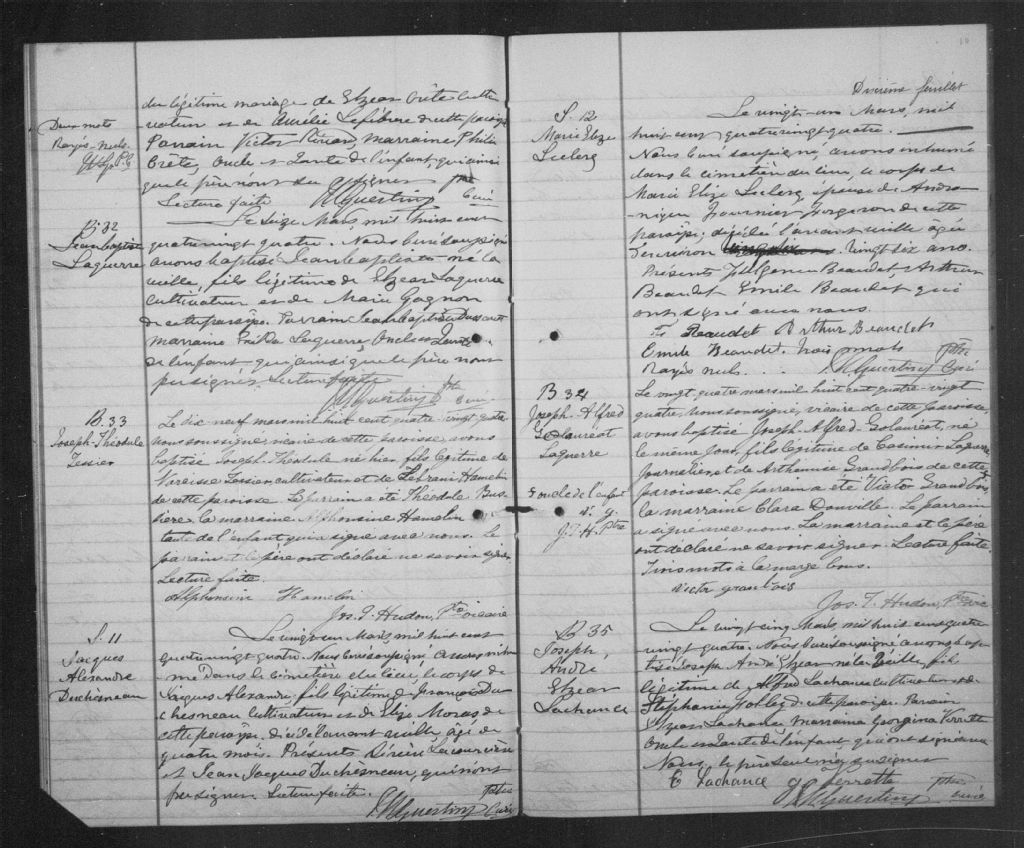 du légitime mariage de Elzear Crête Culti
vateur et de Aurélie Lefebvre de cette paroisse
Deux mots
Rayés nuls.
Parrain Victor marraine Phili
Crête, Oncle et Tante de l'enfant, qui ainsi
que le père n'ont su signer ptre
Lecture faite Curé
B. 32
Jean baptiste
Laguerre
Le Seize Mars, mil huit cent
quatre vingt quatre. Nous Curé soussigné
avons baptisé Jean baptiste né la
veille, fils légitime de Elzear Laguerre
Cultivateur et de Marie Gagnon
de cette paroisse. Parrain Jean baptiste
marraine Laguerre, Oncle et Tante
de l'enfant qui ainsi que le père n'ont
pu signer. Lecture faite
ptre Curé
B. 33
Joseph-Théodule
Tessier
Le dix neuf mars mil huit cent quatre-vingt quatre
nous soussigné vicaire de cette paroisse, avons
baptisé Joseph-Théodule né hier, fils légitime de
Narcisse Tessier cultivateur et de Hamelin
de cette paroisse. Le parrain a été Théodule Bus
sière la marraine Alphonsine Hamelin
tante de l'enfant qui a signé avec nous. Le
parrain et le père ont déclaré ne savoir signer
Lecture faite.
Alphonsine Hamelin
Jos. T. Hudon, Ptre vicaire
S. 11
Jacques
Alexandre
Duchesneau
Le vingt un Mars, mil huit cent
quatre vingt quatre. Nous Curé soussigné avons inhu
mé Dans le cimetière du lieu, le corps de
Jacques Alexandre, fils légitime de François Du
chesneau Cultivateur et de Eliza Moras, de
cette paroisse. décédé l'avant veille âgé de
quatre mois. Présents Lacoursière
et Jean Jacques Duchesneau, qui n'ont
pu signer. Lecture faite.
ptre
Curé
10
Dixième feuillet
S. 12
Marie Elize
Leclerc
Le vingt-un Mars, mil
huit cent quatre vingt quatre.
Nous Curé soussigné avons inhumé
dans le cimetière du lieu, le corps de
Marie Elize Leclerc épouse de Andro
nique Tournier Forgeron de cette
paroisse; décédée l'avant veille âgée
d'environ vingt six ans.
Présents Fulgence Beaudet Arthur
Beaudet Emile Beaudet qui
ont signé avec nous.
F. Beaudet Arthur Beaudet
Emile Beaudet. trois mots
Rayés nuls. ptre
Curé
B 34
Joseph-Alfred
Laguerre
Le vingt-quatre mars mil huit cent quatre-vingt
quatre, nous soussigné, vicaire de cette paroisse,
avons baptisé Joseph Alfred né
le même jour, fils légitime de Casimir Laguerre
Journalier et de Arthémise Grandbois de cette
paroisse. Le parrain a été Victor Grandbois
oncle de l'enfant
J. T. H. Ptre
la marraine Clara Douville. Le parrain
a signé avec nous. La marraine et le père
ont déclaré ne savoir signer. Lecture faite
Trois mots à la marge bons.
Victor granbois
Jos. T. Hudon, Ptre vicaire
B 35
Joseph,
André
Elzear
Lachance
Le vingt cinq Mars, mil huit cent quatre
vingt quatre. Nous Curé soussigné avons bap
tisé Joseph André Elzear né la veille, fils
légitime de Alfred Lachance Cultivateur et de
Stéphanie de cette paroisse. Parrain
Elzear Lachance Marraine Georgina Verrette
Oncle et Tante de l'enfant, qui ont signé avec
Nous, le père
E Lachance G Verrette
ptre
curé